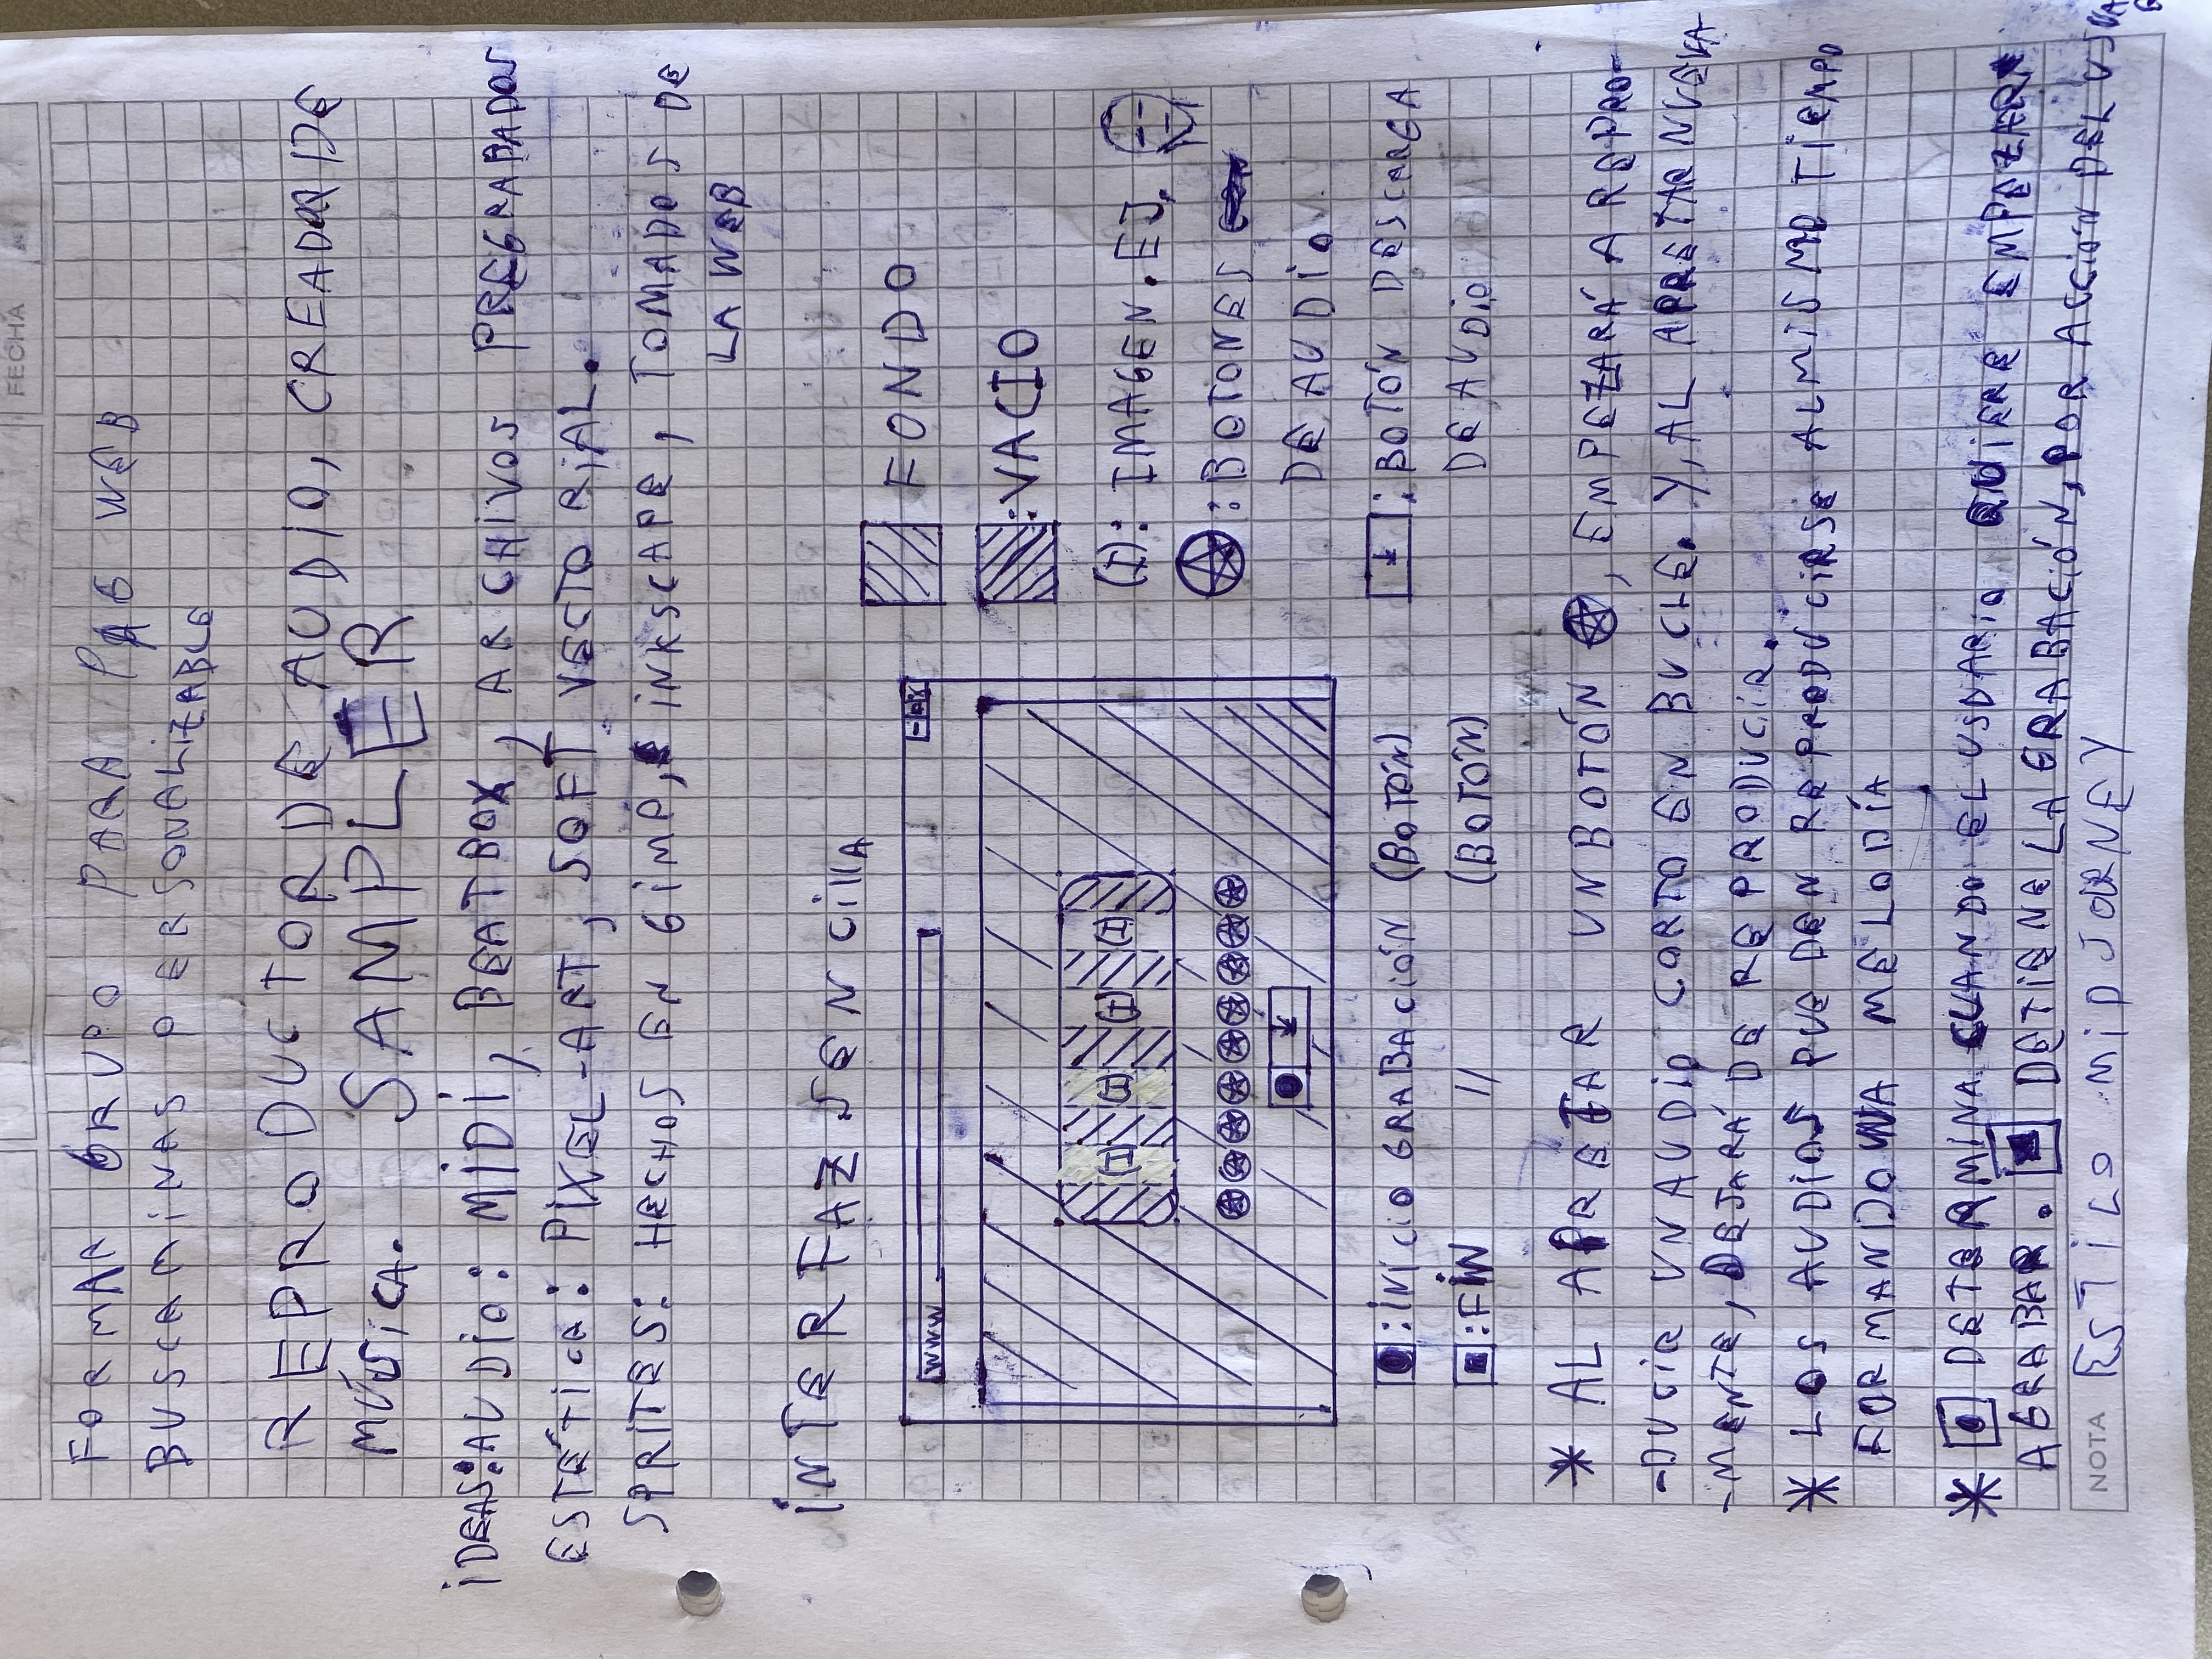 FECHA
FORMAR GRUPO PARA PAG WEB
BUSCAMINAS PERSONALIZABLE
REPRODUCTOR DE AUDIO, CREADOR DE
MÚSICA. SAMPLER
IDEAS: AUDIO: MIDI, BEATBOX, ARCHIVOS PREGRABADOS
ESTÉTICA: PIXEL-ART, SOFT VECTORIAL.
SPRITES: HECHOS EN GIMP, INKSCAPE, TOMADOS DE
LA WEB
INTERFAZ SENCILLA
WWW
FONDO
: VACIO
(I) (I) (I) (I)
(I): IMAGEN. EJ.
: BOTONES
DE AUDIO
: INICIO GRABACIÓN (BOTÓN)
: BOTÓN DESCARGA
DE AUDIO
: FIN // (BOTÓN)
* AL APRETAR UN BOTÓN , EMPEZARÁ A REPRO-
-DUCIR UN AUDIO CORTO EN BUCLE. Y, AL APRETAR NUEVA-
-MENTE, DEJARÁ DE REPRODUCIR.
* LOS AUDIOS PUEDEN REPRODUCIRSE AL MISMO TIEMPO
FORMANDO UNA MELODÍA
* DETERMINA CUANDO EL USUARIO QUIERE EMPEZAR
A GRABAR. DETIENE LA GRABACIÓN, POR ACCIÓN DEL USUA
NOTA ESTILO MIDJORNEY